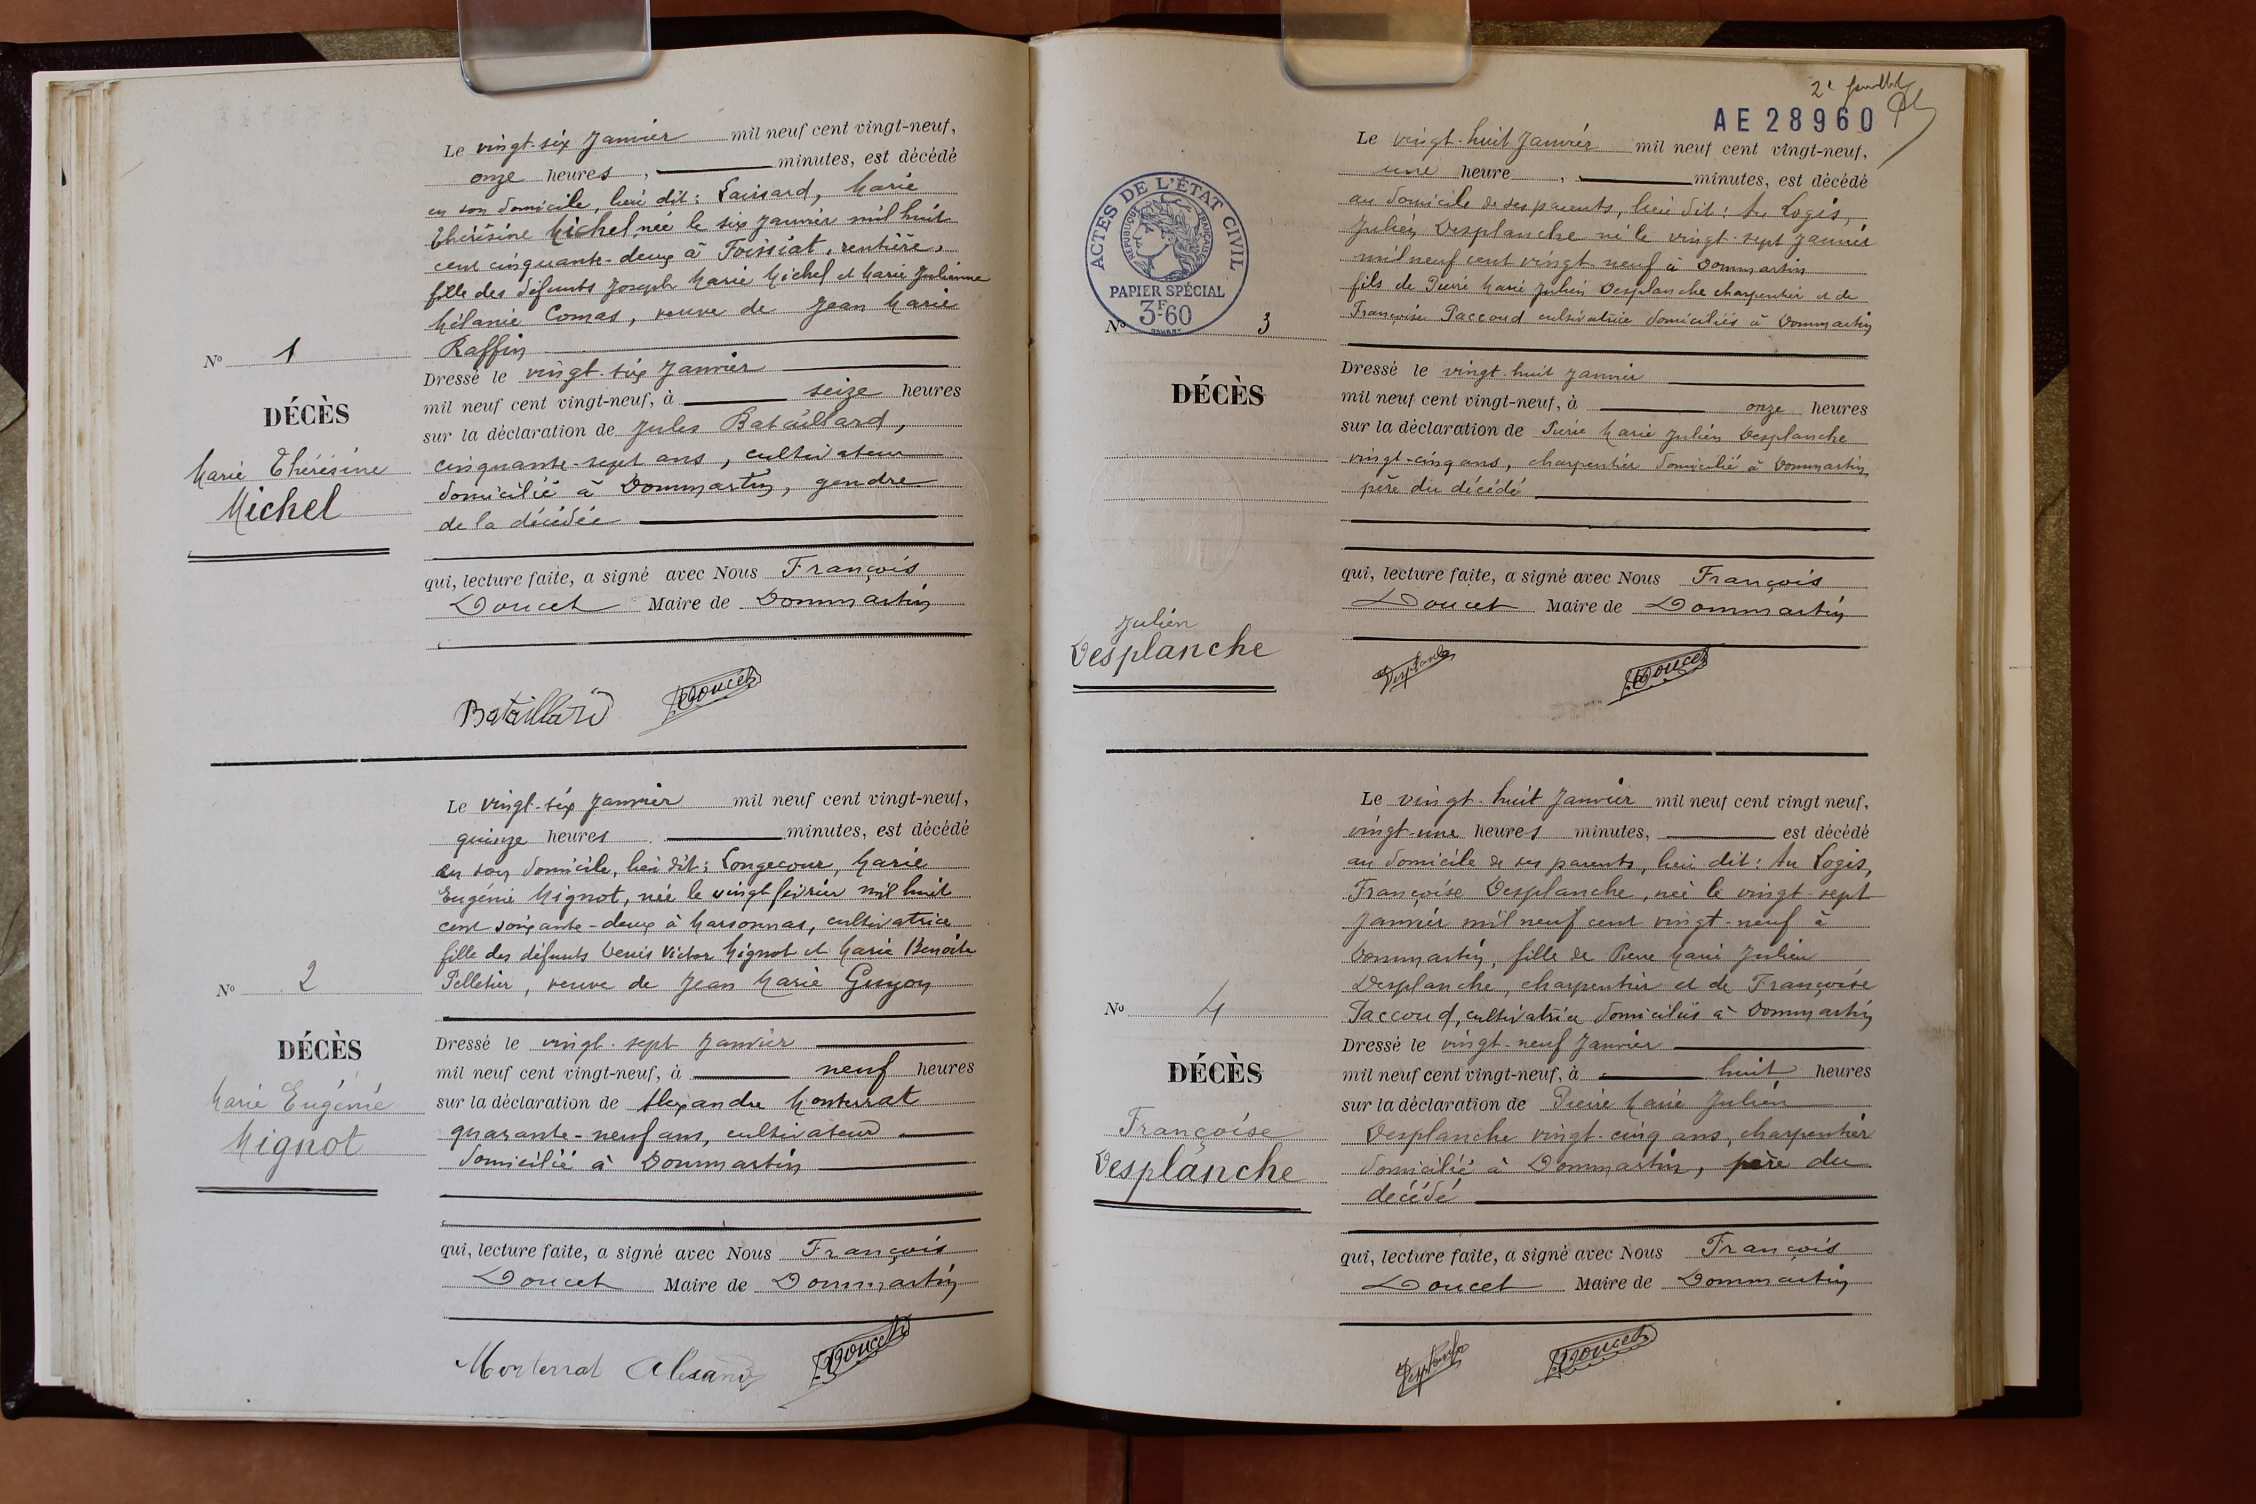 Le vingt-six Janvier mil neuf cent vingt-neuf,
onze heures, minutes, est décédé
en son domicile, lieu dit: Laissard, Marie
Thérésine Michel, née le six Janvier mil huit
cent cinquante-deux à Foissiat, rentière,
fille des défunts Joseph Marie Michel et Marie Julienne
Mélanie Comas, veuve de Jean Marie
Raffin
Nº 1
DÉCÈS
Marie Thérésine
Michel
Dressé le vingt-six Janvier
mil neuf cent vingt-neuf, à seize heures
sur la déclaration de Jules Bataillard,
cinquante-sept ans, cultivateur
domicilié à Dommartin, gendre
de la décédée
qui, lecture faite, a signé avec Nous François
Doucet Maire de Dommartin
Bataillard Doucet
Le vingt-six Janvier mil neuf cent vingt-neuf,
quinze heures minutes, est décédé
en son domicile, lieu dit: Longecour, Marie
Eugénie Mignot, née le vingt février mil huit
cent soixante-deux à Marsonnas, cultivatrice
fille des défunts Denis Victor Mignot et Marie Benoite
Pelletier, veuve de Jean Marie Guyon
Nº 2
DÉCÈS
Marie Eugénie
Mignot
Dressé le vingt-sept Janvier
mil neuf cent vingt-neuf, à neuf heures
sur la déclaration de Alexandre Monterrat
quarante-neuf ans, cultivateur
domicilié à Dommartin
qui, lecture faite, a signé avec Nous François
Doucet Maire de Dommartin
Monterrat Alexandre Doucet
2e feuillet
AE 28960
ACTES DE L'ÉTAT CIVIL
RÉPUBLIQUE FRANÇAISE
PAPIER SPÉCIAL
3F60
Le vingt-huit Janvier mil neuf cent vingt-neuf,
une heure, minutes, est décédé
au domicile de ses parents, lieu dit: Au Logis,
Julien Desplanche né le vingt-sept Janvier
mil neuf cent vingt-neuf à Dommartin
fils de Pierre Marie Julien Desplanche charpentier et de
Françoise Paccoud cultivatrice domiciliés à Dommartin
Nº 3
DÉCÈS
Julien
Desplanche
Dressé le vingt-huit Janvier
mil neuf cent vingt-neuf, à onze heures
sur la déclaration de Pierre Marie Julien Desplanche
vingt-cinq ans, charpentier domicilié à Dommartin
père du décédé
qui, lecture faite, a signé avec Nous François
Doucet Maire de Dommartin
Desplanche Doucet
Le vingt-huit Janvier mil neuf cent vingt neuf,
vingt-une heures minutes, est décédé
au domicile de ses parents, lieu dit: Au Logis,
Françoise Desplanche, née le vingt-sept
Janvier mil neuf cent vingt-neuf à
Dommartin, fille de Pierre Marie Julien
Desplanche, charpentier et de Françoise
Paccoud, cultivatrice domiciliés à Dommartin
Nº 4
DÉCÈS
Françoise
Desplanche
Dressé le vingt-neuf Janvier
mil neuf cent vingt-neuf, à huit heures
sur la déclaration de Pierre Marie Julien
Desplanche vingt-cinq ans, charpentier
domicilié à Dommartin, père du
décédé
qui, lecture faite, a signé avec Nous François
Doucet Maire de Dommartin
Desplanche Doucet